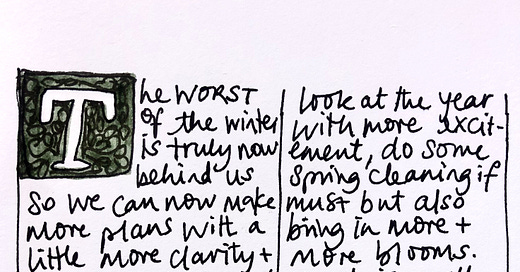 The WORST
of the winter
is truly now
behind us
So we can now make
more plans with a
little more clarity +
look at the year
with more excit-
ement, do some
Spring cleaning if
must but also
bring in more +
more blooms.